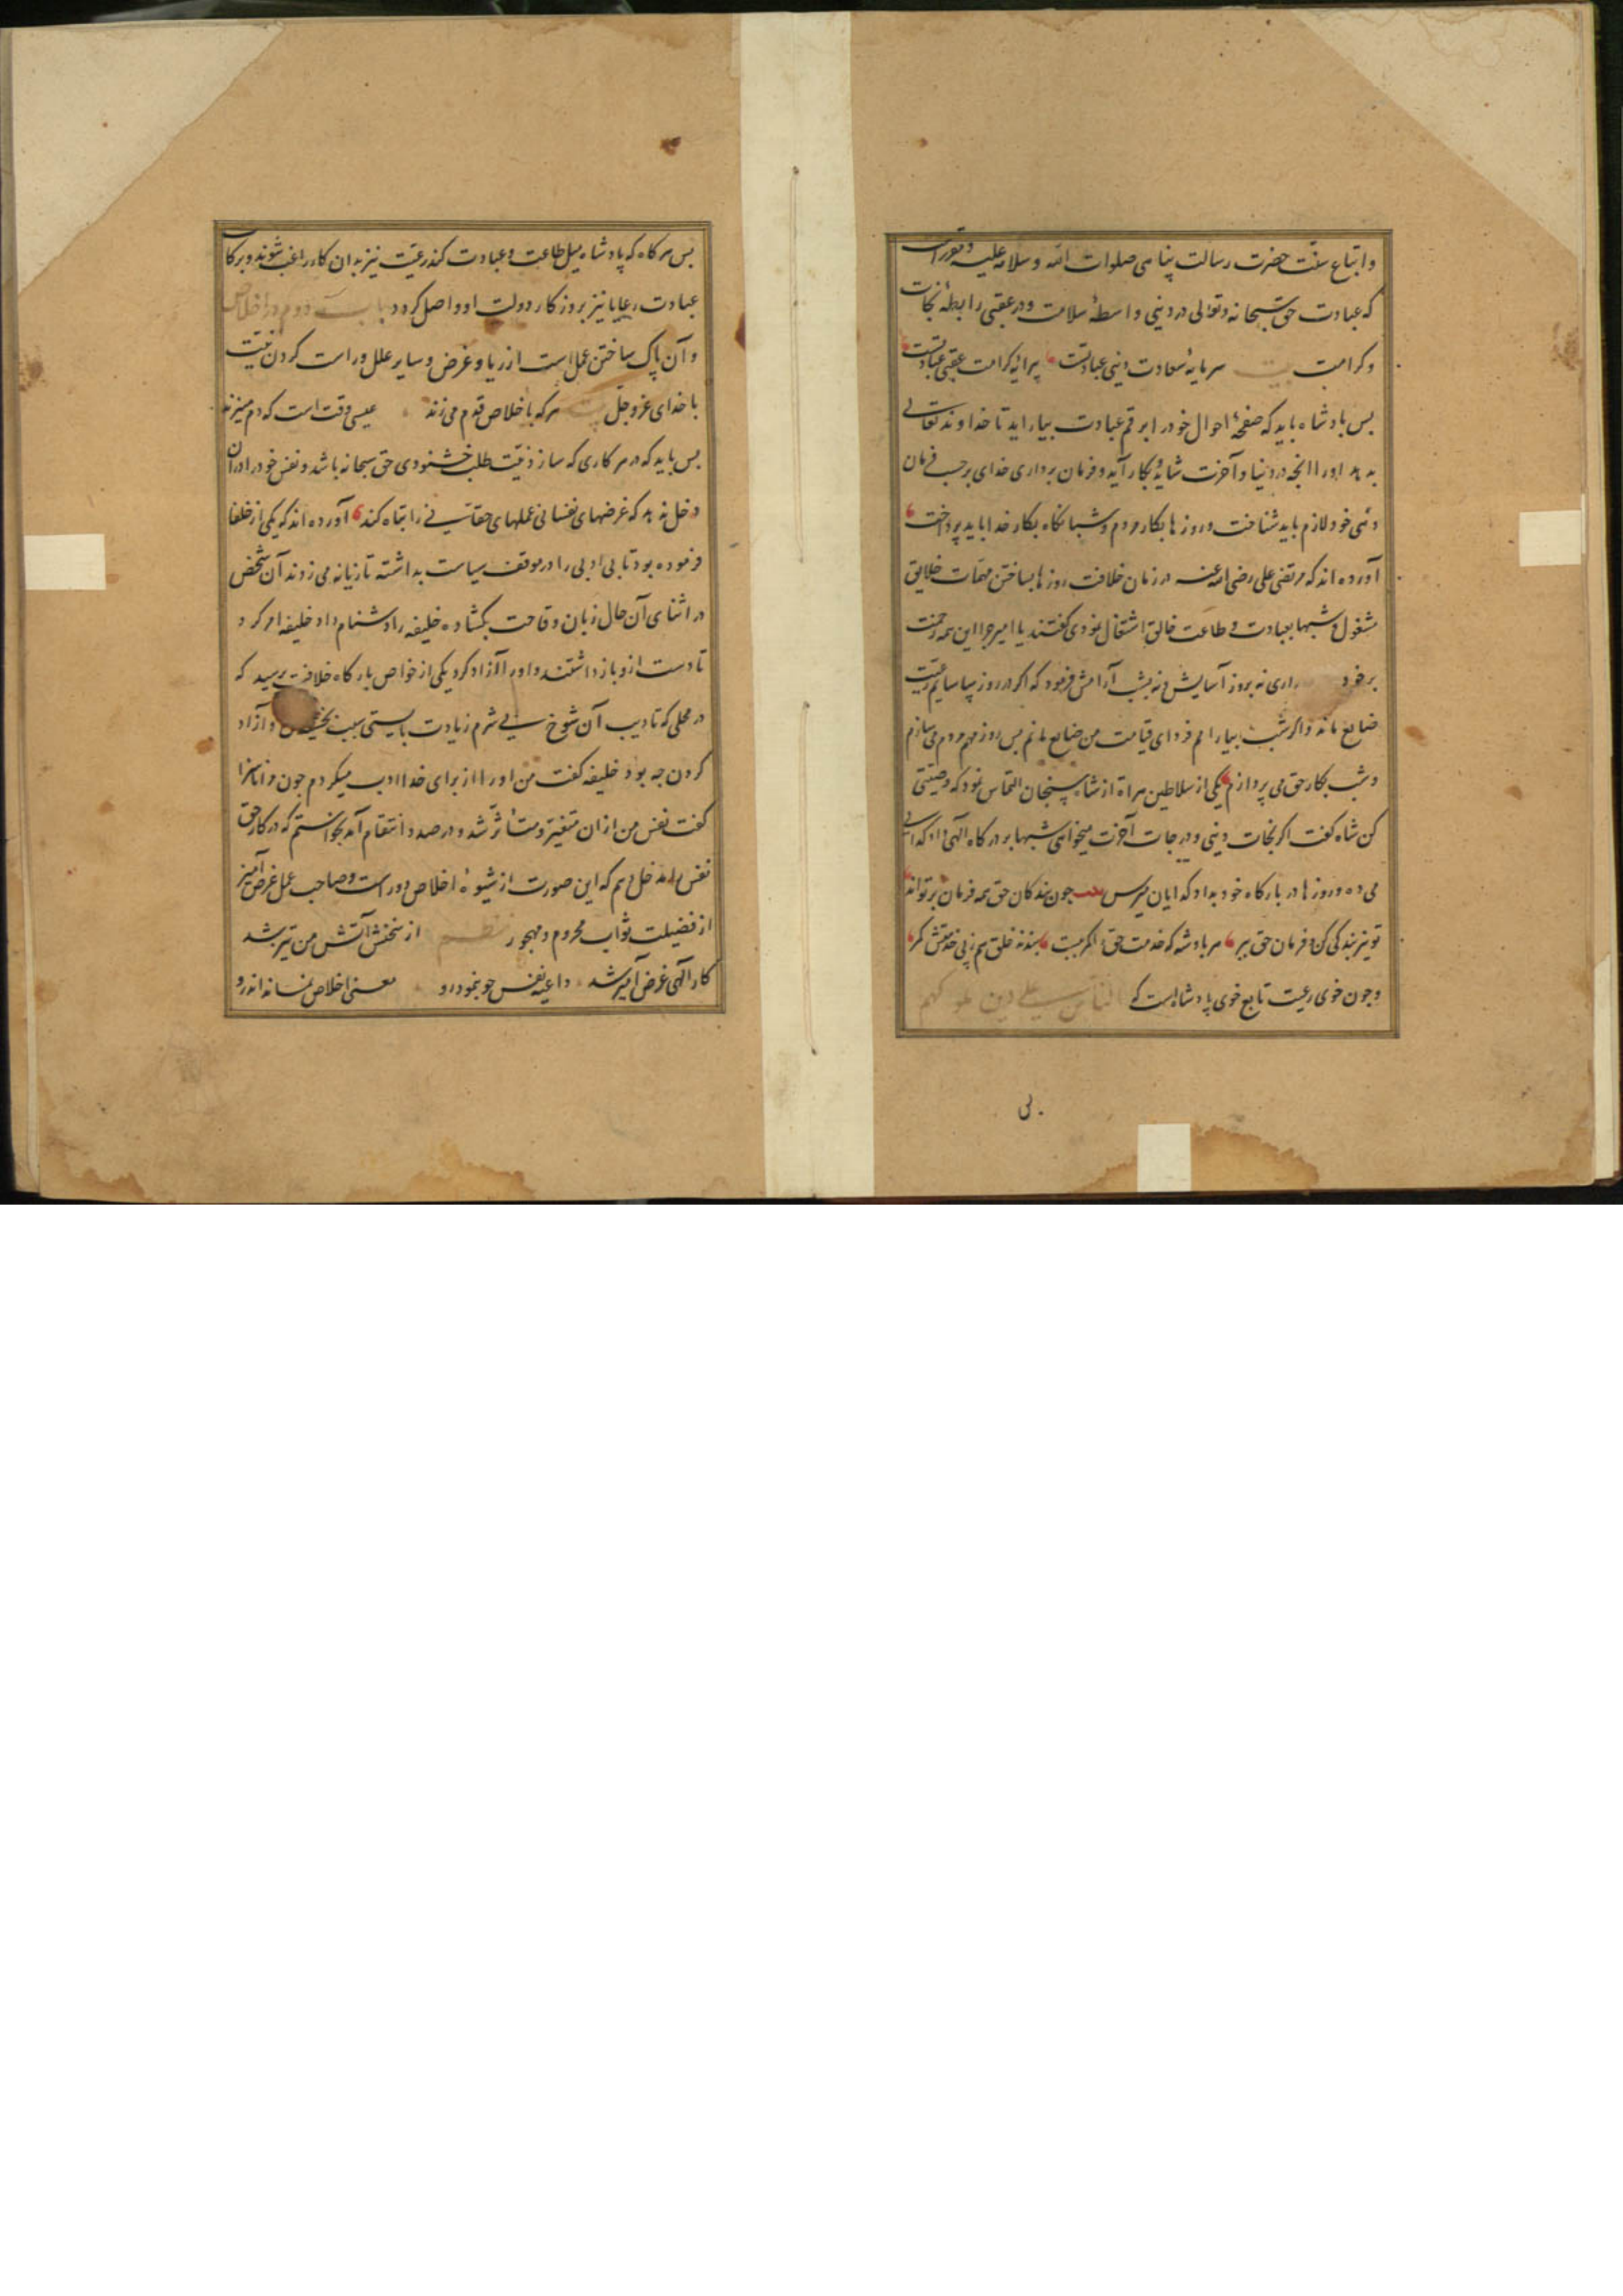 واتباع سنت حضرت رسالت پناهی صلوات الله وسلامه علیه
که عبادت حق سبحانه وتعالی در دینی واسطهٔ سلامت ودر عقبی رابطهٔ نجات
وکرامت بیت سرمایهٔ سعادت دینی عبادتست پیرایهٔ کرامت عقبی عبادتست
بس بادشاه باید که صفحهٔ احوال خود را برقم عبادت بیاراید تا خداوند تعالی
بدهد اورا انچه در دنیا وآخرت شاید وبکار آید وفرمان برداری خدای برحسب فرمان
دهی خود لازم باید شناخت وروزها بکار مردم وشبانکاه بکار خدا باید پرداخت
آورده اند که مرتضی علی رضی الله عنه در زمان خلافت روزها بساختن مهمات خلایق
مشغول وشبها بعبادت وطاعت خالق اشتغال نمودی کفتند یا امیر چرا این همه زحمت
برخود اری نه بروز آسایش ونه بشب آرامش فرمود که اکر در روز بیاسایم رعیت
ضایع ماند واکر شب بیارامم فردای قیامت من ضایع مانم بس روز مهم مردم می سازم
وشب بکار حق می پردازم یکی از سلاطین هراة از شاه سنجان التماس نمود که وصیتی
کن شاه کفت اکر نجات دینی ودرجات آخرت میخواهی شبها بر درکاه الهی داد کدایی
می ده وروزها در بارکاه خود بداد کدایان میرس جون بندکان حق همه فرمان بر تواند
تو نیز بندکی کن وفرمان حق ببر هر بادشه که خدمت حق را کمر ببست بندند خلق هم ز پی خدمتش کمر
وجون خوی رعیت تابع خوی پادشاه است که الناس علی دین ملوکهم
بس هرکاه که پادشاه میل طاعت وعبادت کند رعیت نیز بدان کار راغب شوند وبرکات
عبادت رعایا نیز بروزکار دولت او واصل کردد باب دوم در اخلاص
وآن پاک ساختن عمل است از ریا وغرض وسایر علل وراست کردن نیت
با خدای عز وجل بیت هرکه باخلاص قدم می زند عیسی وقت است که دم میزند
بس باید که در هر کاری که سازد نیت طلب خشنودی حق سبحانه باشد ونفس خود را در آن
دخل ندهد که غرضهای نفسانی عملهای حقانی را تباه کند آورده اند که یکی از خلفا
فرموده بود تا بی ادبی را در موقف سیاست بداشته تازیانه می زدند آن شخص
در اثنای آن حال زبان وقاحت بکشاده خلیفه را دشنام داد خلیفه امر کرد
تا دست ازو باز داشتند واورا آزاد کرد یکی از خواص بارکاه خلافت پرسید که
در محلی که تادیب آن شوخ بی شرم زیادت بایستی سبب بخشیدن وآزاد
کردن چه بود خلیفه کفت من اورا از برای خدا ادب میکردم جون مرا ناسزا
کفت نفس من از ان متغیر ومتأثر شد ودر صدد انتقام آمد نخواستم که در کار حق
نفس را مدخل دهم که این صورت از شیوهٔ اخلاص دور است وصاحب عمل غرض آمیز
از فضیلت ثواب محروم ومهجور نظم از سخنش آتش من تیز شد
کار الهی غرض آمیز شد داعیه نفس جو بنمود رو معنی اخلاص نماند اندرو